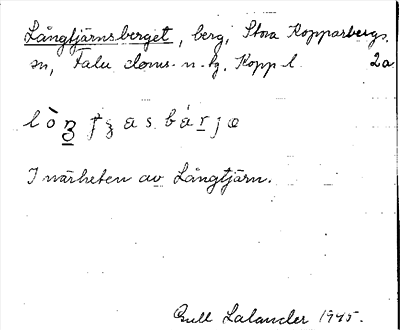 Långtjärnsberget, berg, Stora Kopparbergs
sn, Falu doms. o. tg. Kopp. l. 2a
I närheten av Långtjärn.
Gull Lalander 1945.